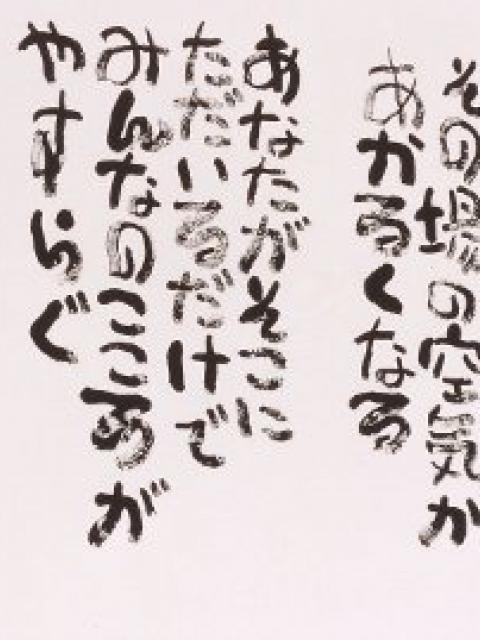 その場の空気が
あかるくなる
あなたがそこに
ただいるだけで
みんなのこころが
やすらぐ